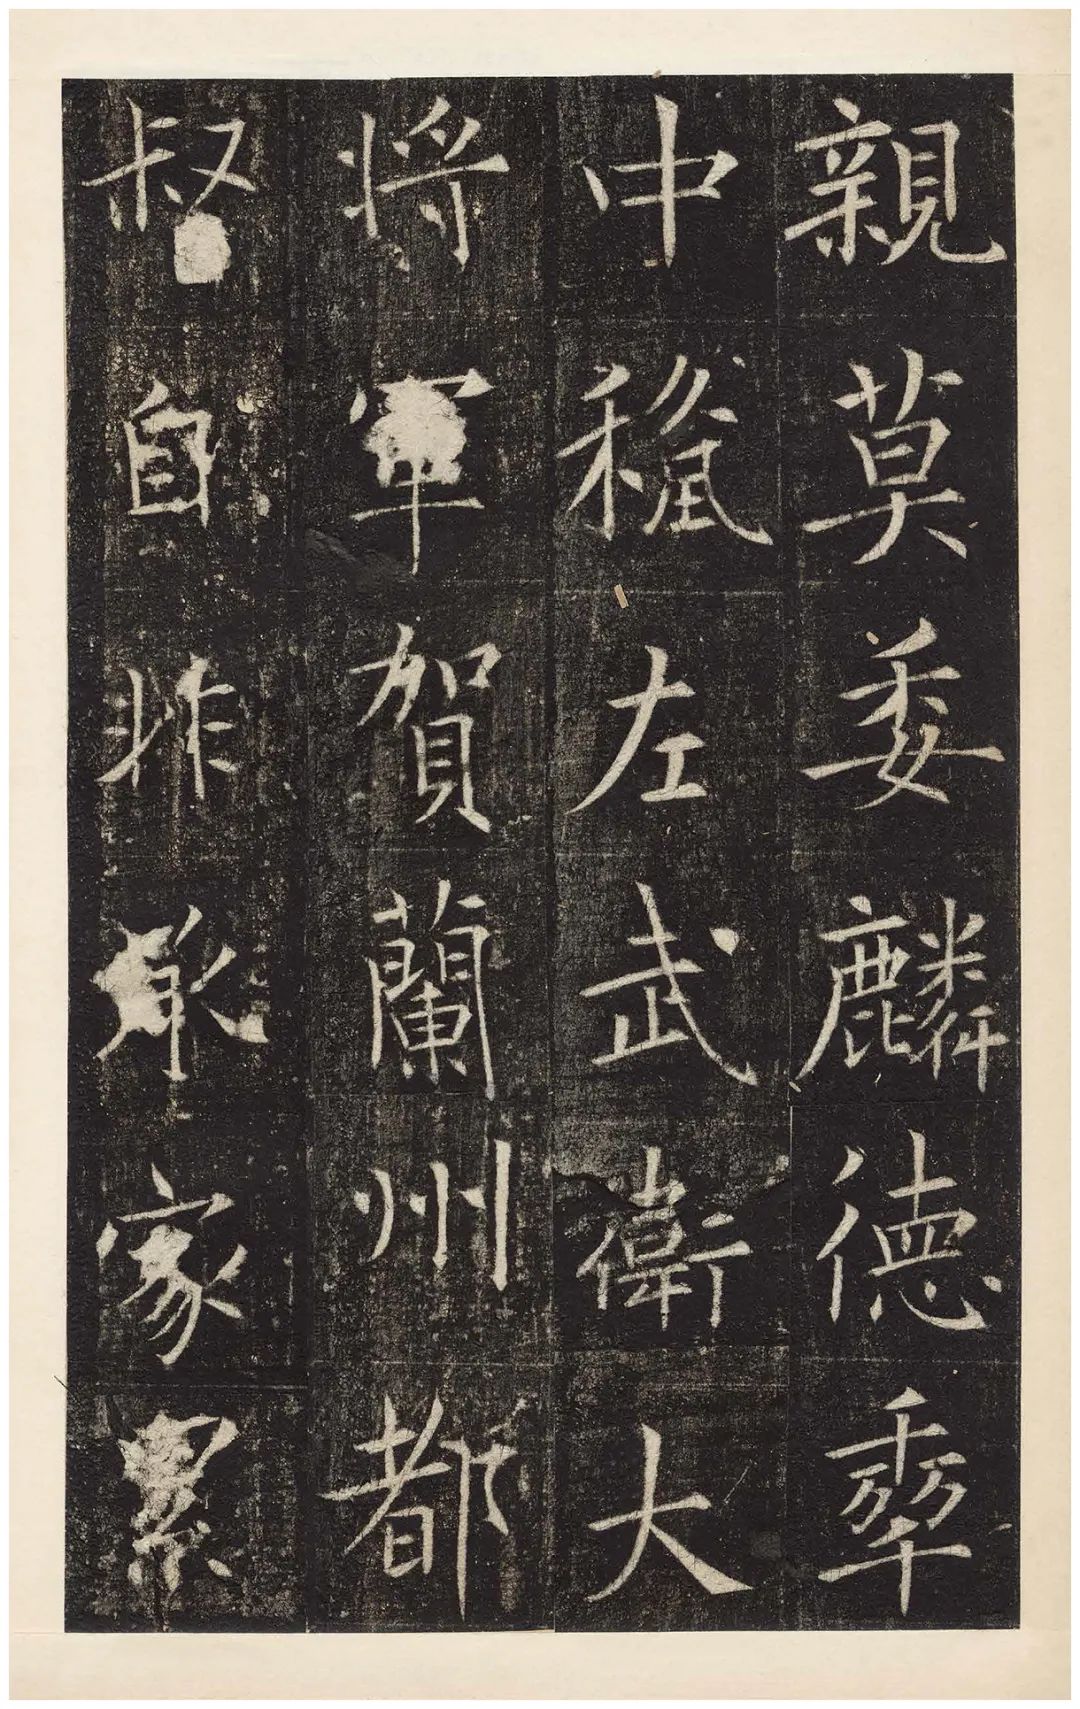 親莫委麟德𠡦
中𥠢左武衛大
將軍賀蘭州都
督自非承家累